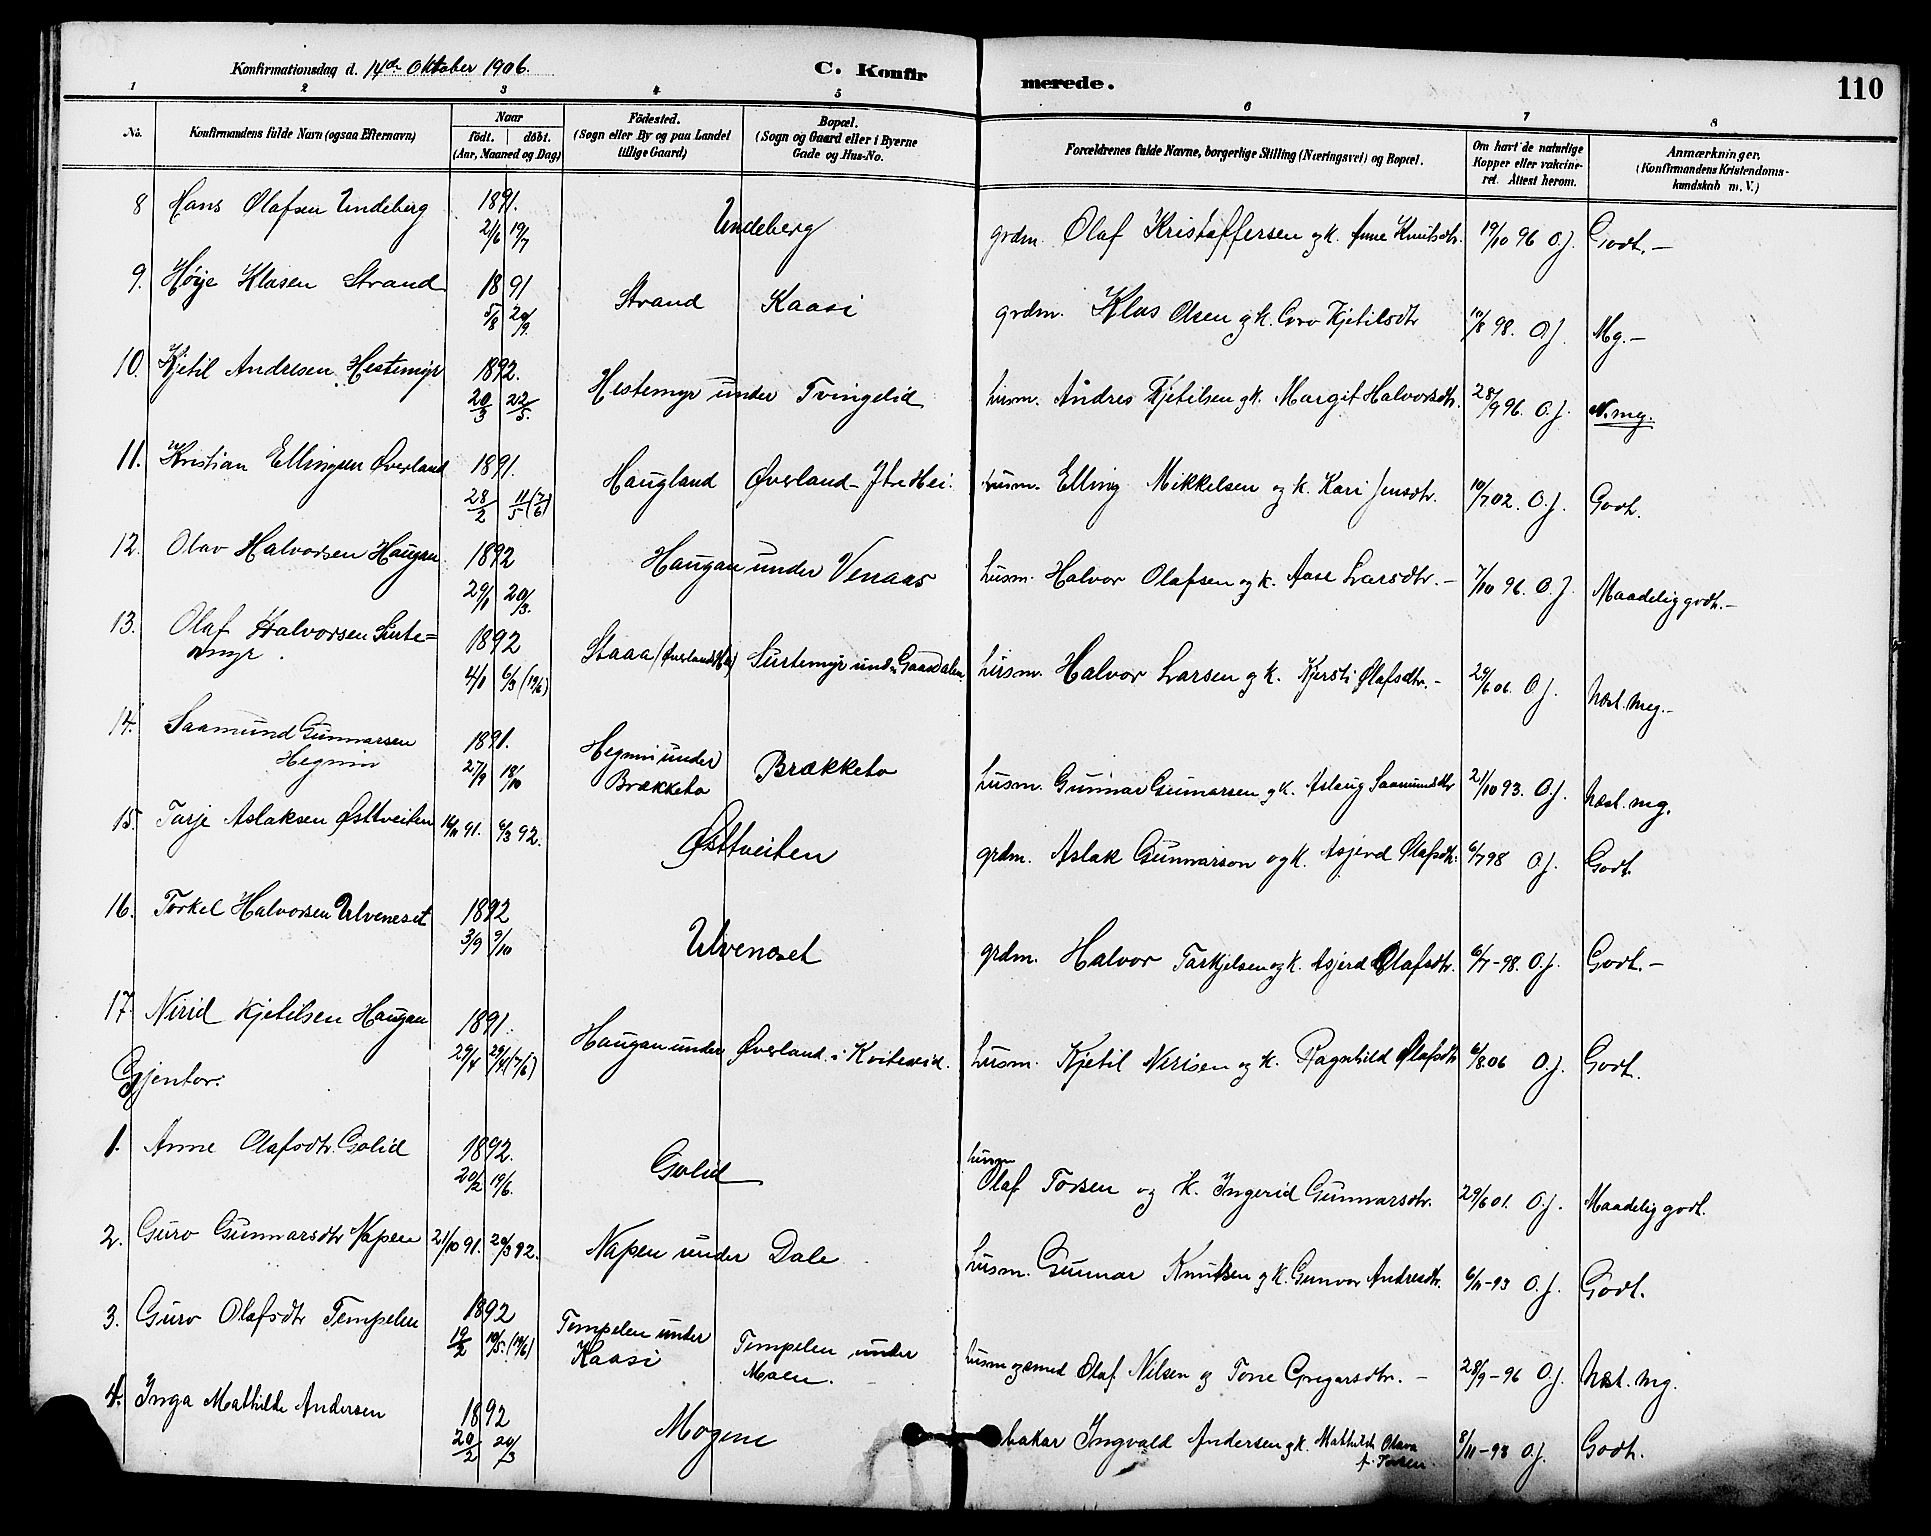 Konfirmationsdag d. 14de Oktober 1906.
C. Konfirmerede.
110
1 2 3 4 5 6 7 8
No.
Konfirmandens fulde Navn (ogsaa Efternavn)
Naar
födt. döbt.
(Aar, Maaned og Dag)
Födested.
(Sogn eller By og paa Landet
tillige Gaard)
Bopæl.
(Sogn og Gaard eller i Byerne
Gade og Hus-No.
Forældrenes fulde Navne, borgerlige Stilling (Næringsvei) og Bopæl.
Om havt de naturlige
Kopper eller vakcine-
ret. Attest herom.
Anmærkninger.
(Konfirmandens Kristendoms-
kundskab m. V.)
8 Hans Olafsen Undeberg 1891. 2/6 19/7 Undeberg grdm. Olaf Kristaffersen og k. Anne Knutsdtr. 19/10 96 O.J. Godt.-
9. Høije Klasen Strand 1891 5/8 20/9. Strand Kaasi grdm. Klas Olsen og k. Goro Kjetilsdtr 10/8 98. O.J. Mg.-
10. Kjetil Andresen Hestemyr 1892. 20/3 22/5. Hestemyr under Tvingelid husm. Andres Kjetilsen og k. Margit Halvorsdtr. 28/9 96. O.J. N.mg.
11. Kristian Ellingsen Øverland 1891. 28/2 11/5 (7/6) Haugland Øverland - Ytre Hei. husm. Elling Mikkelsen og k. Kari Jensdtr. 10/7 02. O.J. Godt.
12. Olav Halvorsen Haugan 1892 29/1 20/3. Haugan under Venaas husm. Halvor Olafsen og k. Aase Larsdtr. - 7/10 96. O.J. Maadelig godt.-
13. Olaf Halvorsen Surte=
myr. 1892 4/1 6/3 (19/6) Staaa (Øverlands Hei) Surtemyr under Gaasdalen husm. Halvor Larsen og k. Kjersti Olafsdtr.- 29/6 06. O.J. Næst. meg.-
14. Saamund Gunnarsen
Hegnin 1891. 27/9 18/10 Hegnin under
Brækketo Brækketo husm. Gunnar Gunnarsen og k. Aslaug Saamundsdtr 21/10 93. O.J. Næst. mg.
15. Tarje Aslaksen Østtveiten 14/11 91. 6/3 92. Østtveiten grdm. Aslak Gunnarson og k. Asjerd Olafsdtr. 6/7 98 O.J. Godt.
16. Torkel Halvorsen Ulveneset 1892 3/9 9/10 Ulvenæset grdm. Halvor Tarkjelsen og k. Asjerd Olafsdtr. 6/7-98. O.J. Godt.-
17. Nirid Kjetilsen Haugan 1891. 29/4 29/4 (7/6) Haugan under Øverland i Kviteseid. husm. Kjetil Nirisen og k. Ragnhild Olafsdtr 6/8 06 O.J. Godt.
Gjenter:
1. Anne Olafsdtr. Golid 1892. 20/2 19/6. Golid husm
Olaf Torsen og k. Ingerid Gunnarsdtr. 29/6 01. O.J. Maadelig godt.
2. Guro Gunnarsdtr Napen 21/10 91. 20/3 92. Napen under Dale husm. Gunnar Knutsen og k. Gunvor Andresdtr. 6/11-93 O.J. Godt.
3. Guro Olafsdtr Tempelen 1892 19/2 10/5. (19/6) Tempelen under
Kaasi Tempelen under
Moen. husm og smed Olaf Nilsen og Tone Gregarsdtr. - 28/9-96 O.J. Næst. mg.
4. Inga Mathilde Andersen 1892 20/2 20/3 Mogene bakar Ingvald Andersen og k. Mathilde Olava
f. Torsen. 8/11-98 O.J. Godt.